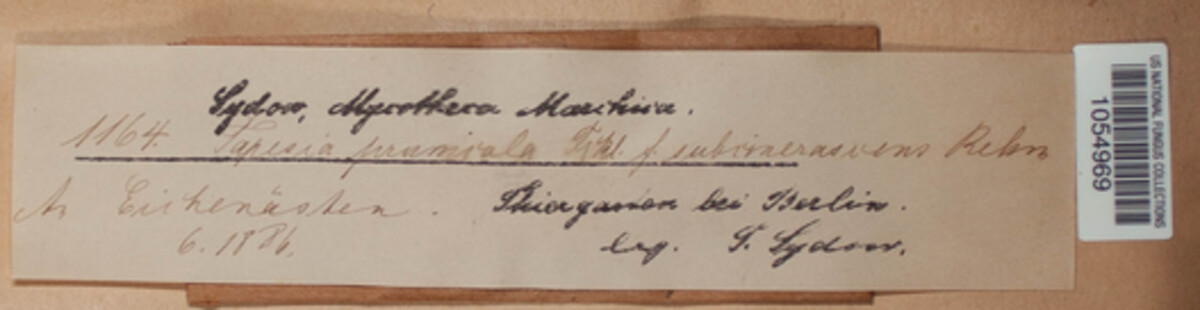 Sydow, Mycotheca Marchica.
1164. Tapesia prunicola Fckl. f. subcinerascens Rehm
An Eichenästen. Thiergarten bei Berlin.
6. 1886. leg. P. Sydow.
US NATIONAL FUNGUS COLLECTIONS
1054969